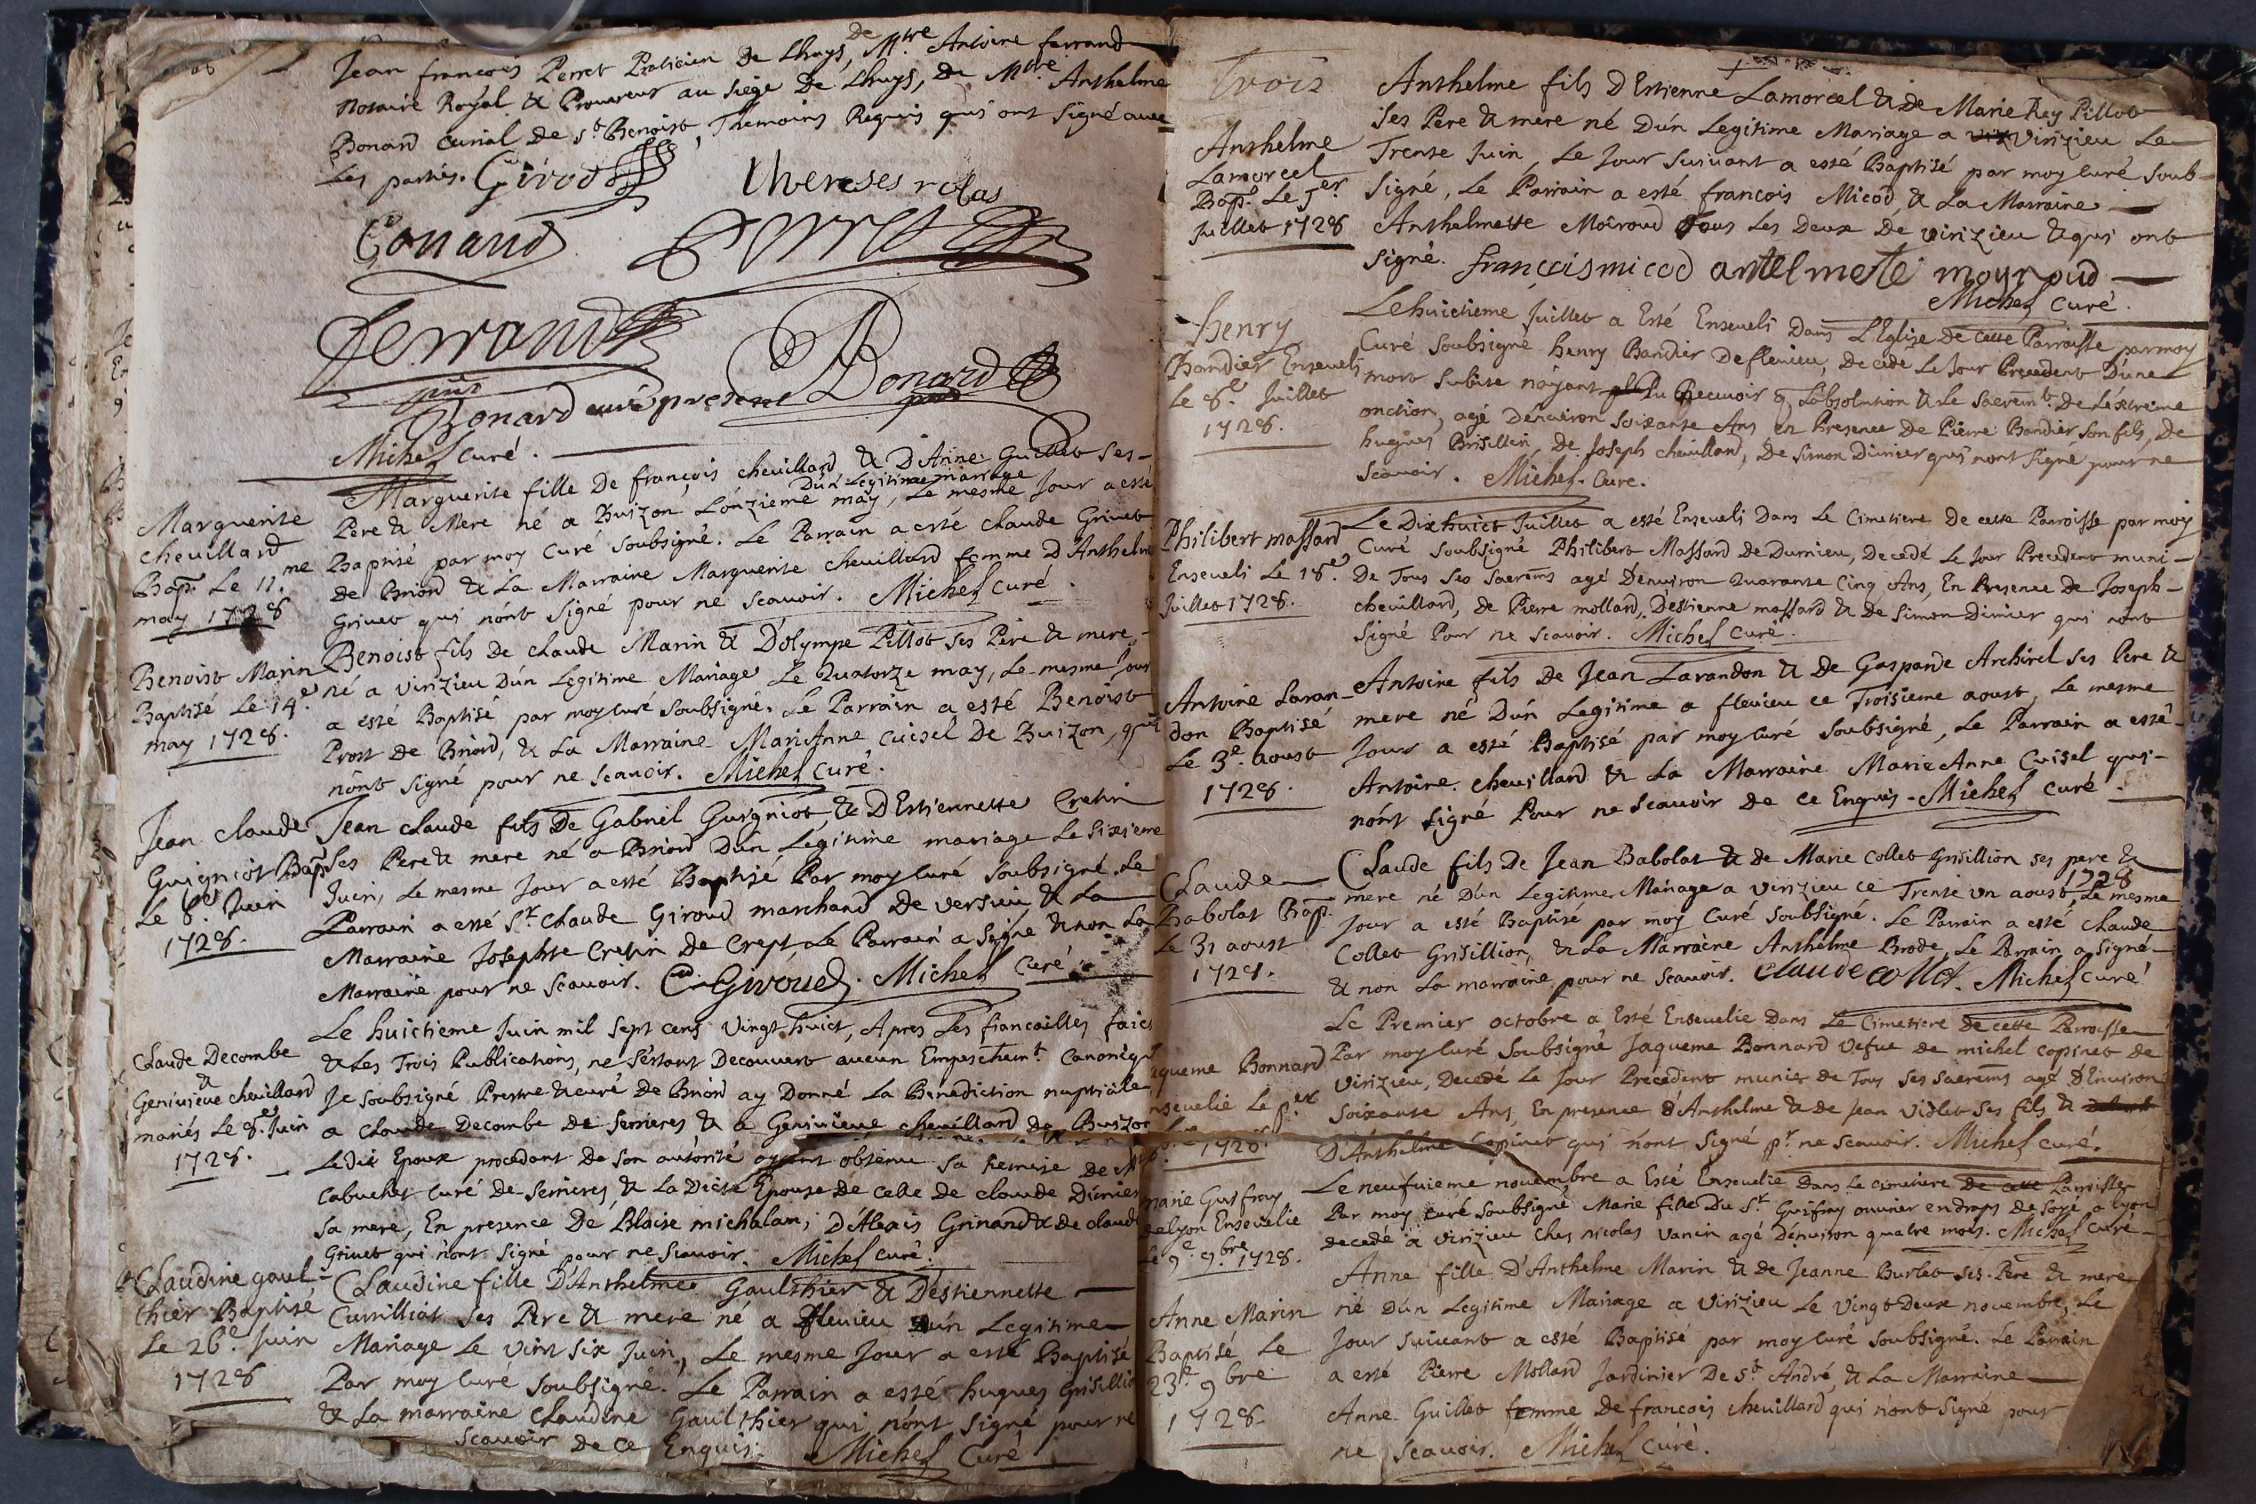 Jean francois Perret Praticien De Lhuys, de Mtre Antoine ferrand
notaire Royal & Procureur au siege De Lhuys, de Mtre Anthelme
Bonard curial de st Benoist, Themoins Requis qui ont signé avec
Les parties. Girod
thereses rolas
Conand Perret
ferrand
Bonard curé present Bonard
Michel Curé.
Marguerite
chevillard
Bapt. Le 11.me
may 1728
Marguerite fille De françois chevillard & D'Anne Guillet ses
Pere & Mere né a Buizon Dun Legitime mariage L'onzieme may, Le mesme Jour a esté
Baptisé par moy Curé soubsigné. Le Parrain a esté claude Grivet
de Briord & La Marraine Marguerite chevillard femme D'Anthelme
Grivet qui n'ont signé pour ne scavoir. Michel Curé.
Benoist Marin
Baptisé Le 14.e
may 1728.
Benoist fils De claude Marin & D'olympe Pillot ses Pere & mere,
né a virizieu D'un Legitime Mariage Le Quatorze may, Le mesme Jour
a esté Baptisé par moy Curé soubsigné. Le Parrain a esté Benoist
Prost de Briord, & La Marraine MariAnne cuisel De Buizon, qui
n'ont signé pour ne scavoir. Michel Curé.
Jean claude
Guigniot Bapt.
Le 6.e Juin
1728.
Jean claude fils De Gabriel Guigniot, & D'Estiennette Cretin
ses Pere & mere né a Briord D'un Legitime mariage Le sixieme
Juin, Le mesme Jour a esté Baptisé Par moy Curé soubsigné. Le
Parrain a esté sr. Claude Giroud marchand De versieu & La
Marraine Josephte Cretin de Crept. Le Parrain a signé & non La
Marraine pour ne scavoir. C. Giroud. Michel Curé.
Claude Decombe
&
Genivieve chevillard
mariés Le 8.e Juin
1728.
Le huictieme Juin mil sept cens vingt huict, Apres Les fiancailles faict
& Les Trois Publications, ne s'estant Decouvert aucun Empeschemt. Canonique
Je soubsigné Prestre & curé de Briord ay Donné La Benediction nuptiale
a Claude Decombe de serrieres & a Genivieve chevillard de Buizon
Ledit Epoux procedant de son autorité ayant obtenu sa Remise de
Cabuchet Curé de serrieres, & La Dicte Epouse de Celle de Claude Dimier
sa mere, En presence De Blaise michalan, D'Alexis Grinand & de claude
Grivet qui n'ont signé pour ne scavoir. Michel Curé.
Claudine gaul-
thier Baptisé
Le 26.e Juin
1728
Claudine fille D'Anthelme Gaulthier & D'estiennette
Curilliat ses Pere & mere né a flevieu D'un Legitime
Mariage Le vint six Juin, Le mesme Jour a esté Baptisé
Par moy Curé soubsigné. Le Parrain a esté hugues Grisillion
& La marraine Claudine Gaulthier qui n'ont signé pour ne
scavoir de ce Enquis. Michel Curé
Trois
Anthelme
Lamorcel
Bapt. Le 1er
Juillet 1728
Anthelme fils D'Estienne Lamorcel & de Marie Rey Pillot
ses Pere & mere né D'un Legitime Mariage a virizieu Le
Trente Juin, Le Jour suivant a esté Baptisé par moy Curé soub-
signé, Le Parrain a esté francois Micod & La Marraine
Anthelmette Moiroud Tous Les Deux De virizieu & qui ont
signé. francois micod antelmete moyroud
Michel Curé.
henry
Bandier Enseveli
Le 8.e Juillet
1728.
Le huictieme Juillet a Esté Enseveli Dans L'Eglise De cette Parroisse par moy
Curé soubsigné henry Bandier De flevieu, Decedé Le Jour Precedent D'une
mort subite n'ayant pu Recevoir q L'absolution & Le sacremt. De L'extreme
onction, agé D'environ soixante Ans en Presence De Pierre Bandier son fils, De
hugues Brisillin, De Joseph chevillard, De simon Dimier qui n'ont signé pour ne
scavoir. Michel. Cure.
Philibert massard
Enseveli Le 18.e
Juillet 1728.
Le Dixhuict Juillet a esté Enseveli Dans Le Cimetiere de cette Parroisse par moy
Curé soubsigné Philibert Massard De Durnieu, Decedé Le Jour Precedent muni
De Tous ses sacrems agé D'environ Quarante Cinq Ans, En Presence De Joseph
chevillard, de Pierre mollard, D'estienne massard & de simon Dimier qui n'ont
signé Pour ne scavoir. Michel Curé.
Antoine Lavan-
don Baptisé
Le 3.e aoust
1728.
Antoine fils De Jean Lavandon & De Gasparde Archirel ses Pere &
mere né D'un Legitime a flevieu ce Troisieme aoust, Le mesme
Jour a esté Baptisé par moy Curé soubsigné, Le Parrain a esté
Antoine Chevillard & La Marraine MarieAnne Cuisel qui
n'ont signé Pour ne scavoir de ce Enquis. Michel Curé.
Claude
Babolat Bap.
Le 31 aoust
1728.
Claude fils De Jean Babolat & de Marie Collet Grisillion ses pere &
mere né D'un Legitime Mariage a virizieu ce Trente un aoust 1728, Le mesme
Jour a esté Baptisé par moy Curé soubsigné. Le Parrain a esté claude
Collet Grisillion, & La Marraine Anthelme Brode, Le Parrain a signé
& non La marraine pour ne scavoir. Claude collet. Michel Curé
aqueme Bonnard
nsevelie Le per
8bre 1728
Le Premier octobre a Esté Ensevelie Dans Le Cimetiere de cette Parroisse
Par moy Curé soubsigné Jaqueme Bonnard vefue de michel copinet de
virizieu, Decedé Le Jour Precedent munie de Tous ses sacrems agé D'Environ
soixante Ans, En presence D'Anthelme & de Jean Violet ses fils &
D'Anthelme Copinet qui n'ont signé pr ne scavoir. Michel curé.
marie Guifray
de lyon Ensevelie
Le 9.e 9bre 1728.
Le neufvieme novembre a Esté Ensevelie Dans Le cimetiere De cette Parroisse
Par moy curé soubsigné Marie fille Du sr. Guifray ouvrier en draps de soye a Lyon
decedé a virizieu Ches nicolas vanin agé D'environ quatre mois. Michel Curé
Anne Marin
Baptisé Le
23e 9bre
1728.
Anne fille D'Anthelme Marin & de Jeanne Burlet ses Pere & mere
né D'un Legitime Mariage a virizieu Le vingt Deux novembre, Le
Jour suivant a esté Baptisé par moy Curé soubsigné. Le Parrain
a esté Pierre Mollard Jardinier De st. André, & La Marraine
Anne Guillet femme De francois chevillard qui n'ont signé pour
ne scavoir. Michel Curé.